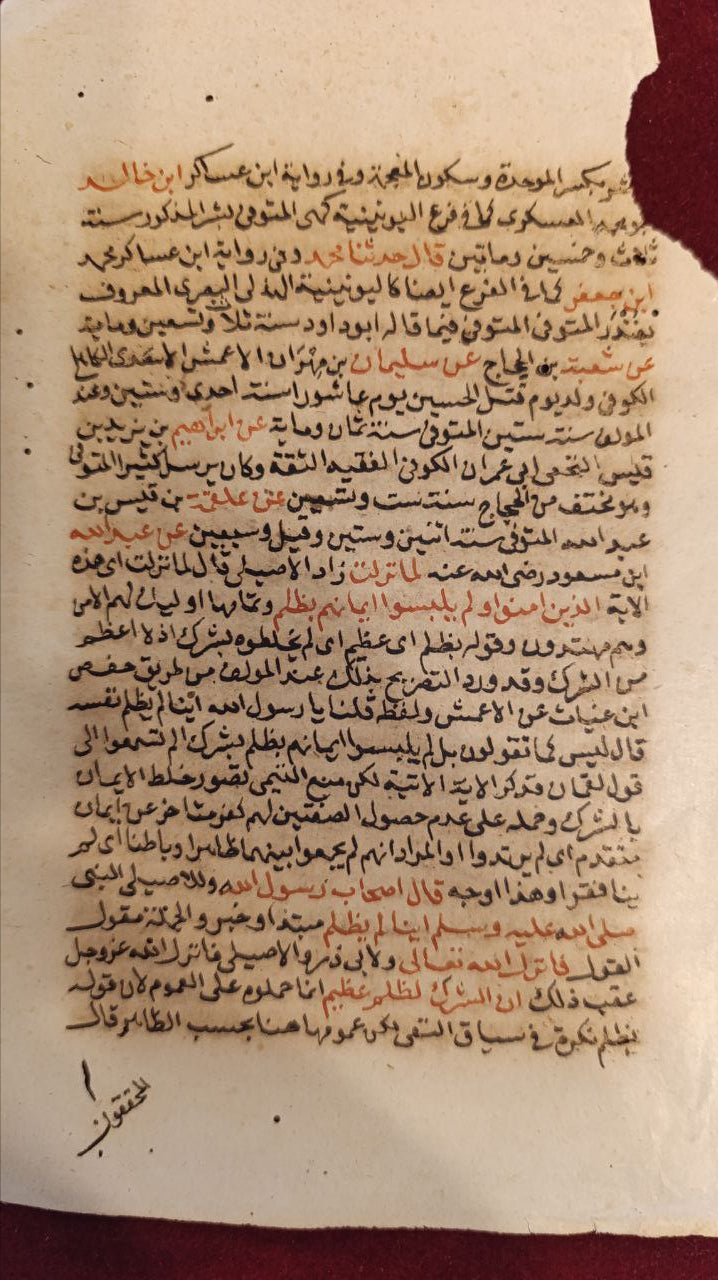 بكسر الموحدة وسكون المعجمة وفي رواية ابن عساكر ابن خالد
العسكرى كما في فرع اليونينية كهى المتوفى بشر المذكور سنة
ثلاث وخمسين ومايتين قال حدثنا محمد وفي رواية ابن عساكر محمد
ابن جعفر كما في الفرع ايضا كاليونينية الهذلى البصرى المعروف
بغندر المتوفى فيما قاله ابو داود سنة ثلاث وتسعين وماية
عن شعبة بن الحجاج عن سليمان بن مهران الاعمش الاسدى الكاهلى
الكوفى ولد يوم قتل الحسين يوم عاشورا سنة احدى وستين وعند
المولف سنة ستين المتوفى سنة ثمان وماية عن ابراهيم بن يزيد بن
قيس النخعى ابى عمران الكوفى الفقيه الثقة وكان يرسل كثيرا المتوفى
وهو مختف من الحجاج سنة ست وتسعين عن علقمة بن قيس بن
عبد الله المتوفى سنة اثنين وستين وقيل وسبعين عن عبد الله
ابن مسعود رضى الله عنه لما نزلت زاد الاصيلى قال لما نزلت اى هذه
الاية الذين امنوا ولم يلبسوا ايمانهم بظلم وتمامها اوليك لهم الامن
وهم مهتدون وقوله بظلم اى عظيم اى لم يخلطوه بشرك اذ لا اعظم
من الشرك وقد ورد التصريح بذلك عند المولف من طريق حفص
ابن غياث عن الاعمش ولفظه قلنا يا رسول الله اينا لم يظلم نفسه
قال ليس كما تقولون بل لم يلبسوا ايمانهم بظلم بشرك الم تسمعوا الى
قول لقمان فذكر الاية الاتية لكن منع التيمى تصور خلط الايمان
بالشرك وحمله على عدم حصول الصفتين لهم كفر متاخر عن ايمان
متقدم اى لم يرتدوا او المراد انهم لم يجمعوا بينهما ظاهرا وباطنا اى لم
ينافقوا وهذا اوجه قال اصحاب رسول الله وللاصيلى النبى
صلى الله عليه وسلم اينا لم يظلم مبتدا وخبر والجملة مقول
القول فانزل الله تعالى ولابى ذر والاصيلى فانزل الله عز وجل
عقب ذلك ان الشرك لظلم عظيم انما حملوه على العموم لان قوله
بظلم نكرة في سياق النفى لكن عمومها هنا بحسب الظاهر قال
المحققون